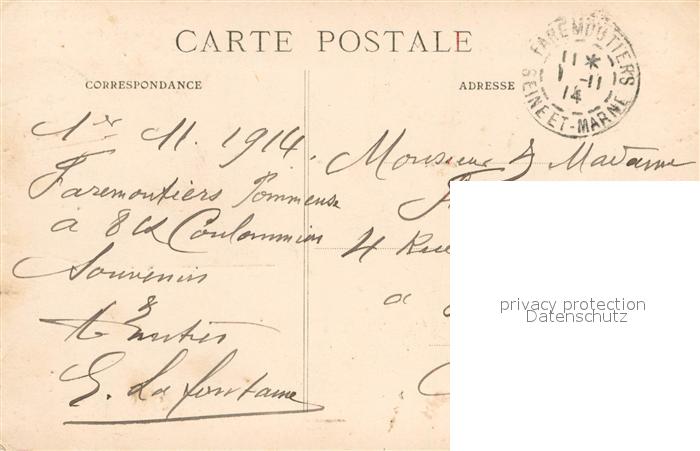 CARTE POSTALE
CORRESPONDANCE
ADRESSE
FAREMOUTIERS
11 *
1 -11
14
SEINE-ET-MARNE
1er 11. 1914.
Faremoutiers Pommeuse
à 8 Coulommiers
Souvenir
&
E. Lafontaine
Monsieur & Madame
4 Rue
à
privacy protection
Datenschutz